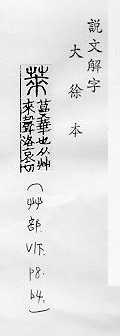 說文解字
大徐本
萊 蔓華也从艸
來聲洛哀切
(艸部. 1下. P8. b4.)